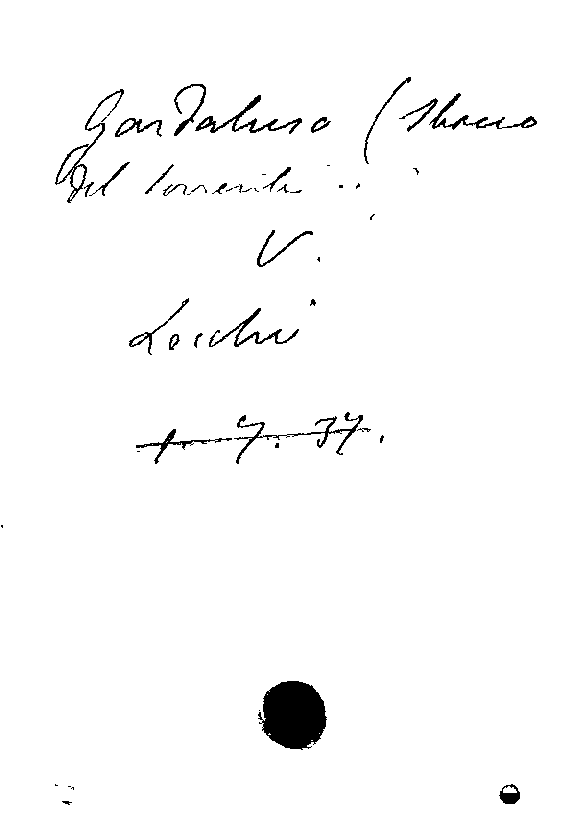 Gardaluso (Sbocco
del torrente ..
V.
Lecchi
1. 7. 37.